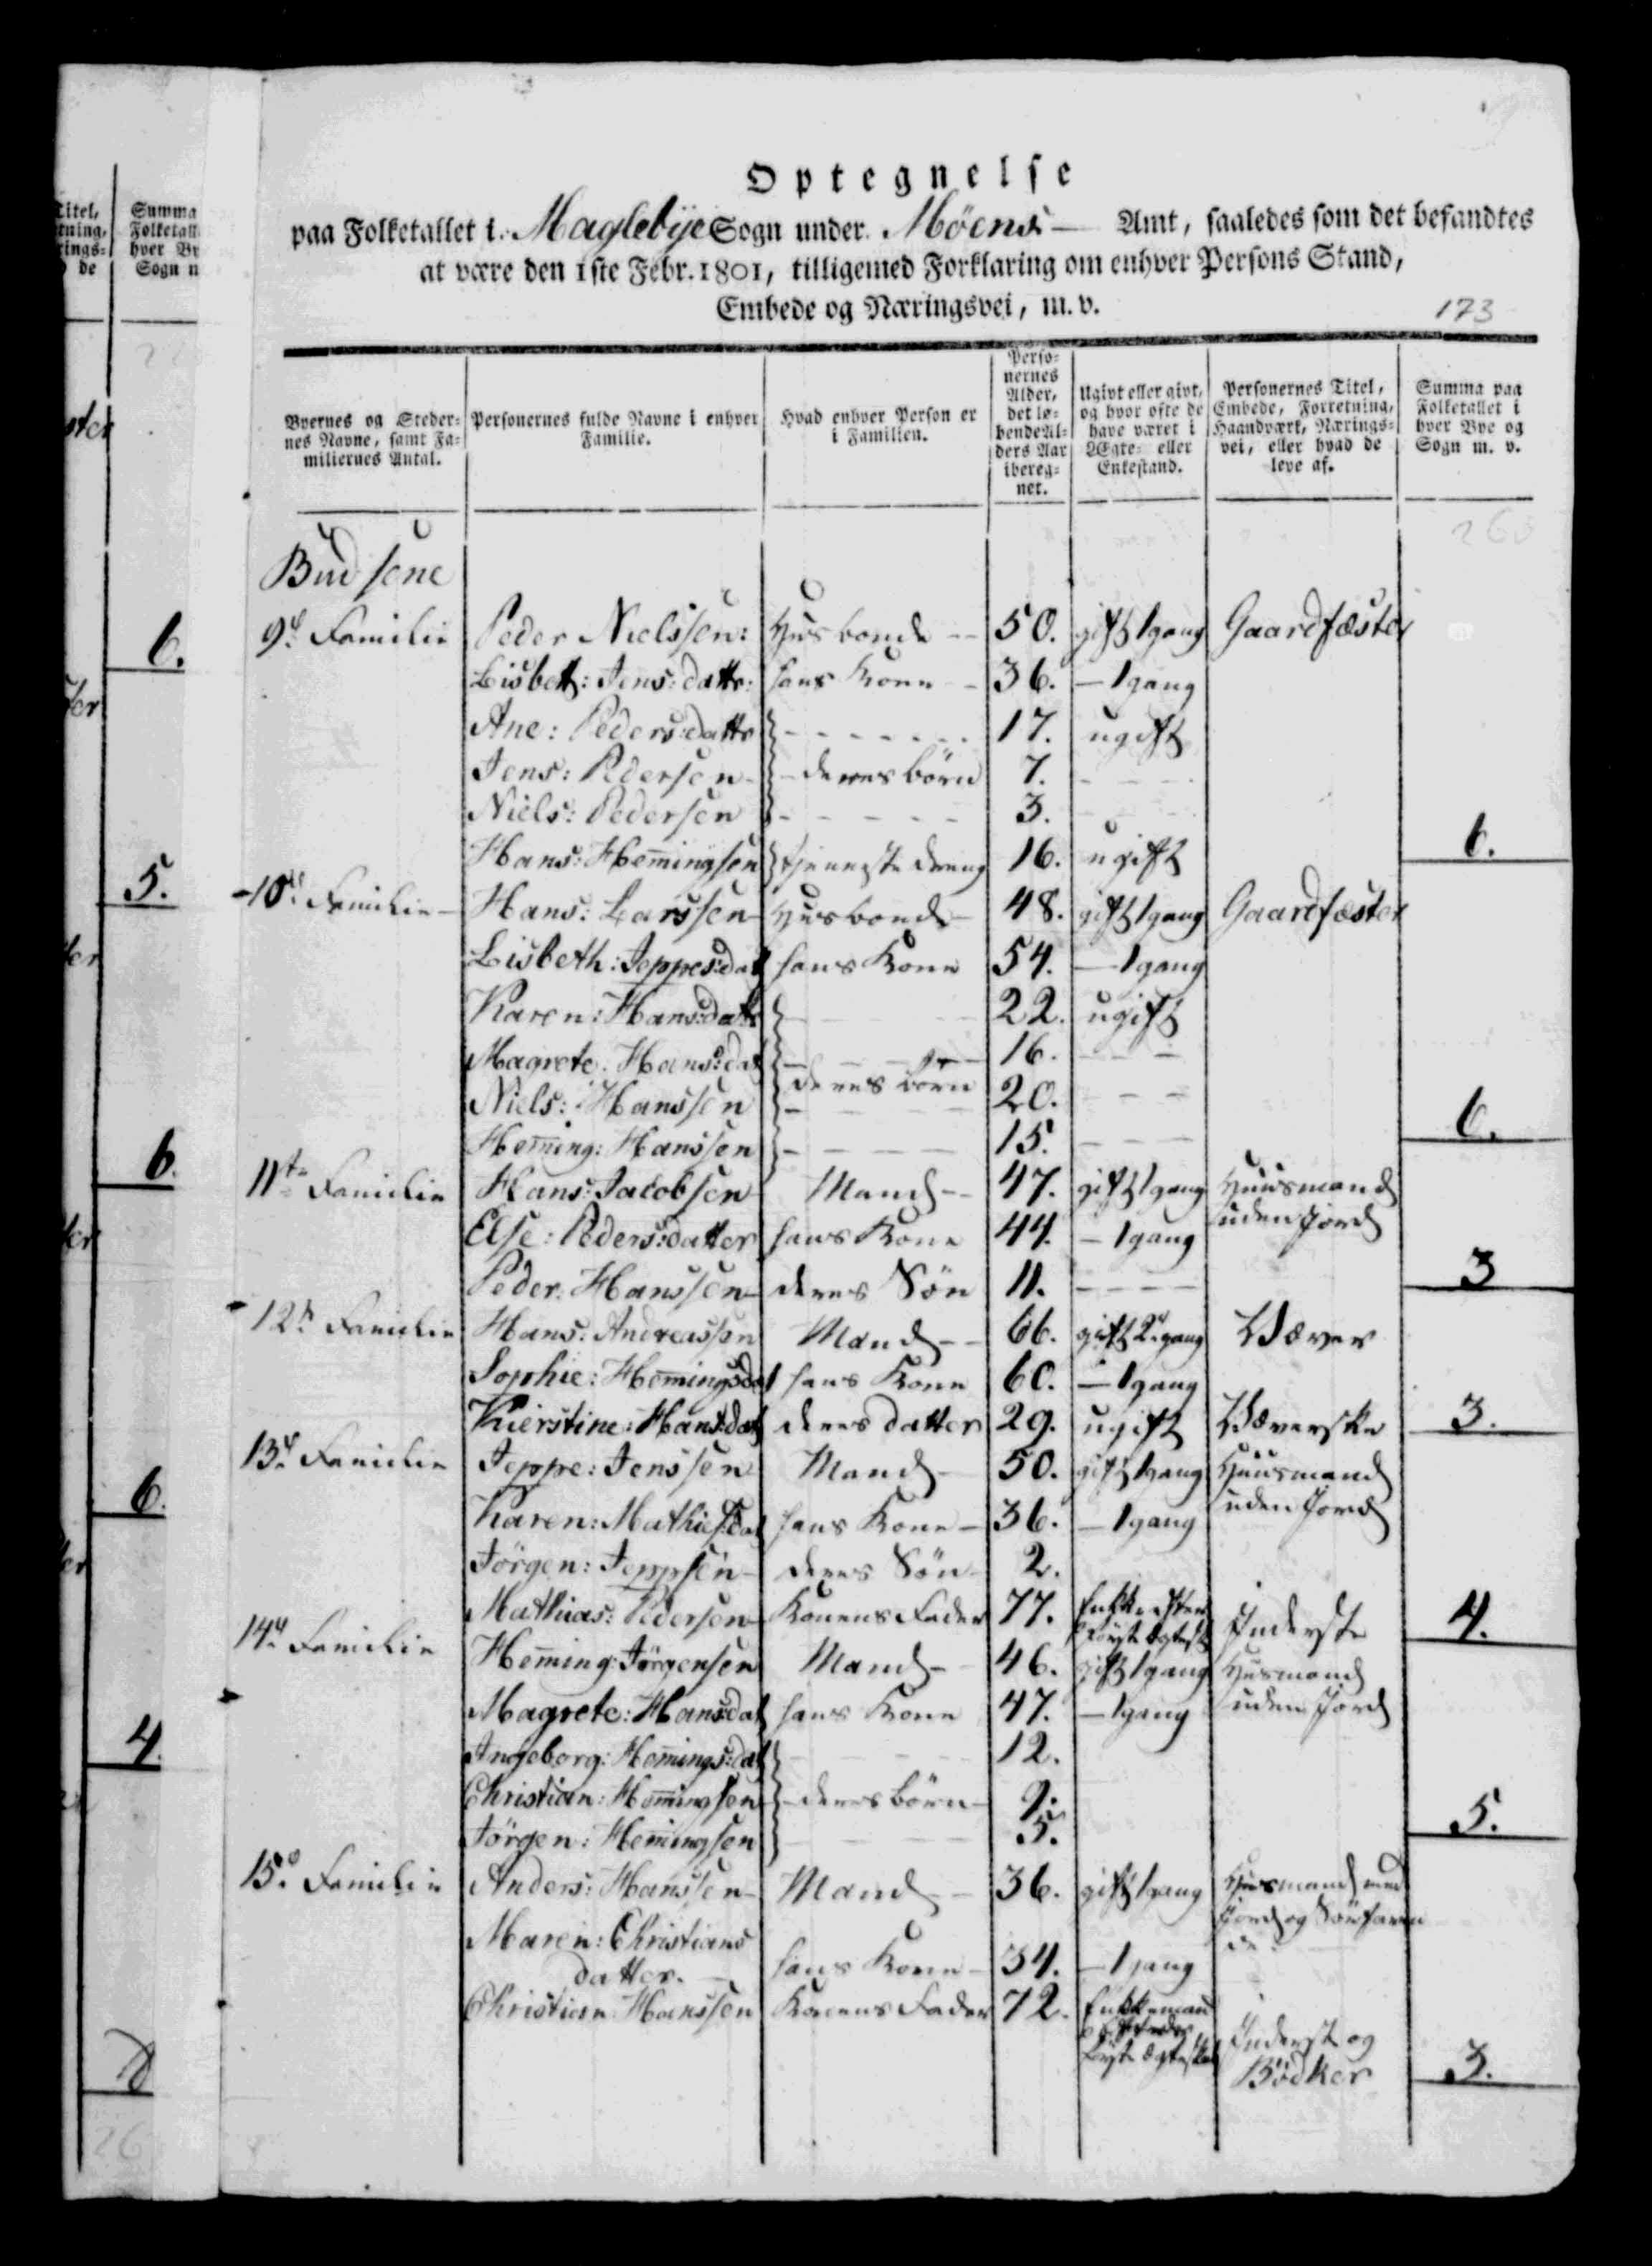 Optegnelse
paa Folketallet i Maglebÿe Sogn under Möens — Amt, saaledes som det befandtes
at være den 1ste Febr. 1801, tilligemed Forklaring om enhver Persons Stand,
Embede og Næringsvei, m. v.
173
Byernes og Steder-
nes Navne, samt Fa-
miliernes Antal.
Personernes fulde Navne i enhver
Familie.
Hvad enhver Person er
i Familien.
Perso-
nernes
Alder,
det lø-
bende Al-
ders Aar
ibereg-
net.
Ugivt eller givt,
og hvor ofte de
have været i
Ægte- eller
Enkestand.
Personernes Titel,
Embede, Forretning,
Haandværk, Nærings-
vei, eller hvad de
leve af.
Summa paa
Folketallet i
hver Bye og
Sogn m. v.
Budsene
9d Familie Peder Nielssen: Husbonde -- 50. gift 1 gang Gaardfæster
Lisbeth: Jens: datter: hans Kone - 36. — 1 gang
Ane: Peders: datter - - - - - - 17. ugift
Jens: Pedersen - deres börn 7. - - -
Niels: Pedersen - - - - - 3.
Hans: Hem̄ingsen tjeneste dreng 16. ugift 6.
10de Familie - Hans: Larssen Husbonde - 48. gift 1 gang Gaardfæster
Lisbeth: Jeppes: dat hans Kone 54. — 1 gang
Karen: Hans: datter 22. ugift
Magrete: Hans: dat - - - 16. - - -
Niels: Hanssen deres börn 20. - - -
Hem̄ing: Hanssen - - - - 15. - - - 6.
11te Familie Hans: Jacobsen Mand -- 47. gift 1 gang Huusmand
Else: Peders: datter hans Kone 44. — 1 gang uden Jord
Peder: Hanssen deres Sön 11. - - - - 3
12te Familie Hans: Andreassen Mand -- 66. gift 2 gang Væver
Sophie: Hem̄ingsdat hans Kone 60. — 1 gang
Kierstine: Hans: dat deres datter 29. ugift Væverske 3.
13d Familie Jeppe: Jenssen Mand - 50. gift 1 gang Huusmand
Karen: Mathies: dat hans Kone - 36. — 1 gang uden Jord
Jörgen: Jeppsen deres Sön 2.
Mathias: Pedersen Konens Fader 77. Enke efter
förste Ægtesk Inderste 4.
14d Familie Hem̄ing: Jörgensen Mand - 46. gift 1 gang Husmand
Magrete: Hans: dat hans Kone 47. — 1 gang uden Jord
Ingeborg: Hem̄ings: dat - - - - 12.
Christian: Hem̄ingsen - deres börn - 9.
Jörgen: Hem̄ingsen - - - - 5. 5.
15d Familie Anders: Hanssen Mand - 36. gift 1 gang Husmand med
Jord og Söefaren
de
Maren: Christians
datter. — hans Kone - 34. — 1 gang
Christian Hanssen Konens Fader 72. Enkkemand
förste Ægteskab
Inderste og
Bödker 3.